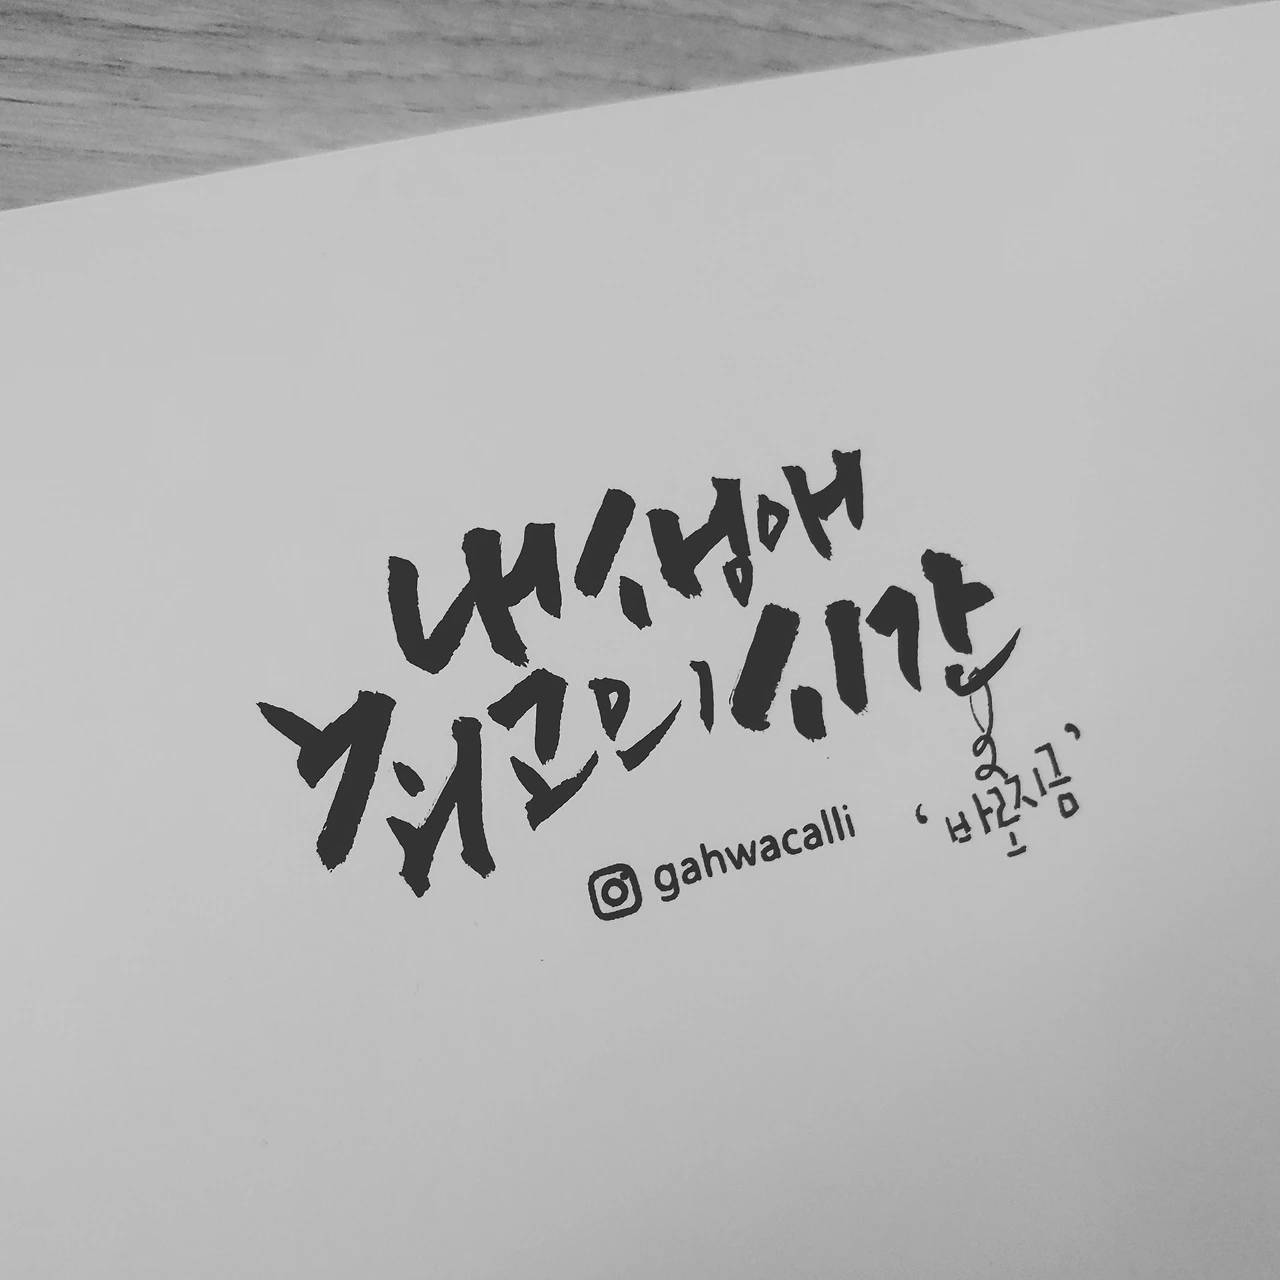 내 생애
최고의 시간
‘바로 지금’
gahwacalli